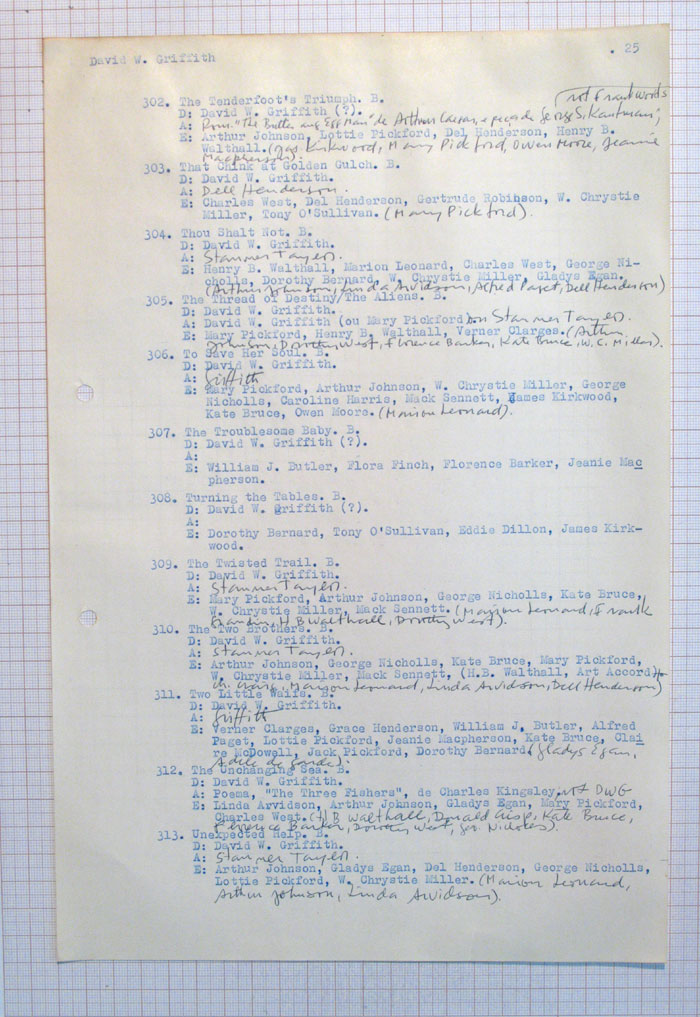 David W. Griffith
. 25
302. The Tenderfoot's Triumph. B.
not Frank Woods
D: David W. Griffith (?).
A: Rom. "The Butter and Egg Man" de Arthur Caesar, e peça de George S. Kaufman;
E: Arthur Johnson, Lottie Pickford, Del Henderson, Henry B.
Walthall. (Jas. Kirkwood, Mary Pickford, Owen Moore, Jeanie
Macpherson).
303. That Chink at Golden Gulch. B.
D: David W. Griffith.
A: Dell Henderson.
E: Charles West, Del Henderson, Gertrude Robinson, W. Chrystie
Miller, Tony O'Sullivan. (Mary Pickford).
304. Thou Shalt Not. B.
D: David W. Griffith.
A: Stanner Tayer).
E: Henry B. Walthall, Marion Leonard, Charles West, George Ni-
cholls, Dorothy Bernard, W. Chrystie Miller, Gladys Egan.
(Arthur Johnson, Linda Arvidson, Alfred Paget, Dell Henderson)
305. The Thread of Destiny/The Aliens. B.
D: David W. Griffith.
A: David W. Griffith (ou Mary Pickford) ou Stanner Tayer).
E: Mary Pickford, Henry B. Walthall, Verner Clarges. (Arthur
Johnson, Dorothy West, Florence Barker, Kate Bruce, W.C. Miller).
306. To Save Her Soul. B.
D: David W. Griffith.
A: Griffith
E: Mary Pickford, Arthur Johnson, W. Chrystie Miller, George
Nicholls, Caroline Harris, Mack Sennett, James Kirkwood,
Kate Bruce, Owen Moore. (Marion Leonard).
307. The Troublesome Baby. B.
D: David W. Griffith (?).
A:
E: William J. Butler, Flora Finch, Florence Barker, Jeanie Mac
pherson.
308. Turning the Tables. B.
D: David W. Griffith (?).
A:
E: Dorothy Bernard, Tony O'Sullivan, Eddie Dillon, James Kirk-
wood.
309. The Twisted Trail. B.
D: David W. Griffith.
A: Stanner Tayer).
E: Mary Pickford, Arthur Johnson, George Nicholls, Kate Bruce,
W. Chrystie Miller, Mack Sennett. (Marion Leonard, Frank
Grandin, H B Walthall, Dorothy West).
310. The Two Brothers. B.
D: David W. Griffith.
A: Stanner Tayer).
E: Arthur Johnson, George Nicholls, Kate Bruce, Mary Pickford,
W. Chrystie Miller, Mack Sennett, (H.B. Walthall, Art Accord
Marion Leonard, Linda Arvidson, Dell Henderson)
311. Two Little Waifs. B.
D: David W. Griffith.
A: Griffith
E: Verner Clarges, Grace Henderson, William J. Butler, Alfred
Paget, Lottie Pickford, Jeanie Macpherson, Kate Bruce, Clai
re McDowell, Jack Pickford, Dorothy Bernard. (Gladys Egan,
Adele de Garde).
312. The Unchanging Sea. B.
D: David W. Griffith.
A: Poema, "The Three Fishers", de Charles Kingsley. not DWG
E: Linda Arvidson, Arthur Johnson, Gladys Egan, Mary Pickford,
Charles West. (H B Walthall, Donald Crisp, Kate Bruce,
Florence Barker, Dorothy West, Geo. Nicholls).
313. Unexpected Help. B.
D: David W. Griffith.
A: Stanner Tayer).
E: Arthur Johnson, Gladys Egan, Del Henderson, George Nicholls,
Lottie Pickford, W. Chrystie Miller. (Marion Leonard,
Arthur Johnson, Linda Arvidson).